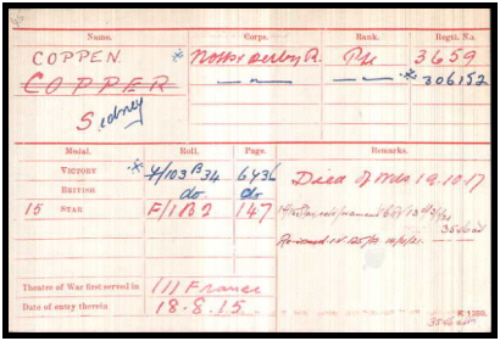 Name. Corps. Rank. Regtl. No.
COPPEN * Notts & Derby R. Pte 3659
COPPER — " — — " — * 306152
Sidney
Medal. Roll. Page. Remarks.
VICTORY * H/103 B34 643
BRITISH do. do
15 STAR F/1B2 147
Died of Wds 19.10.17
Theatre of War first served in (1) France
Date of entry therein 18.8.15.
K 1380.